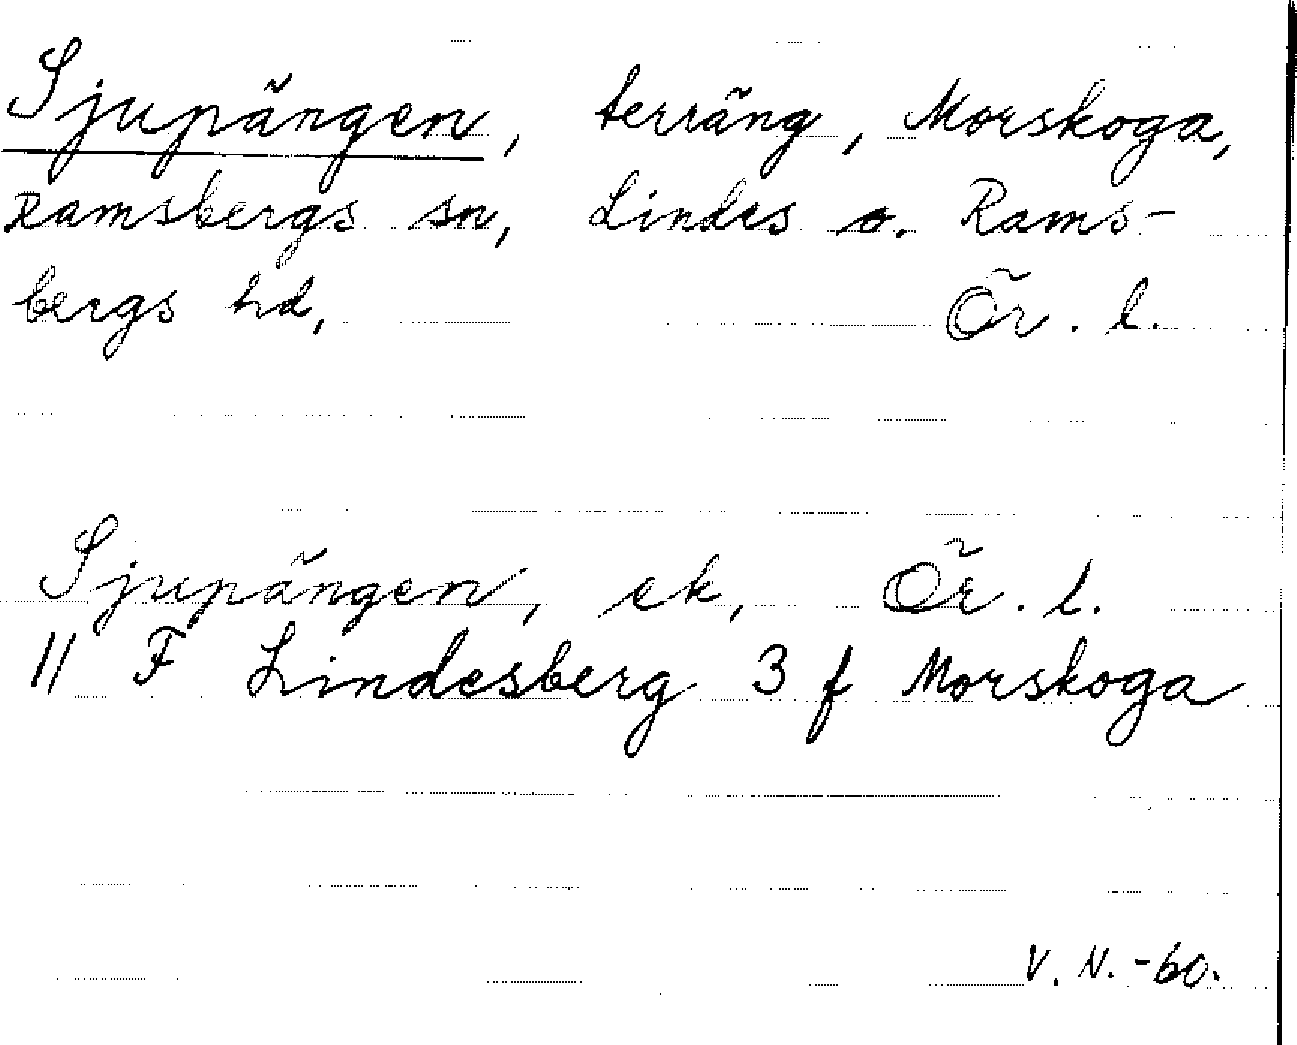 Sjupängen, terräng, Morskoga,
Ramsbergs sn, Lindes o. Rams-
bergs hd, Ör. l.
Sjupängen, ek, Ör. l.
11 F Lindesberg 3 f Morskoga
V. N. -60.